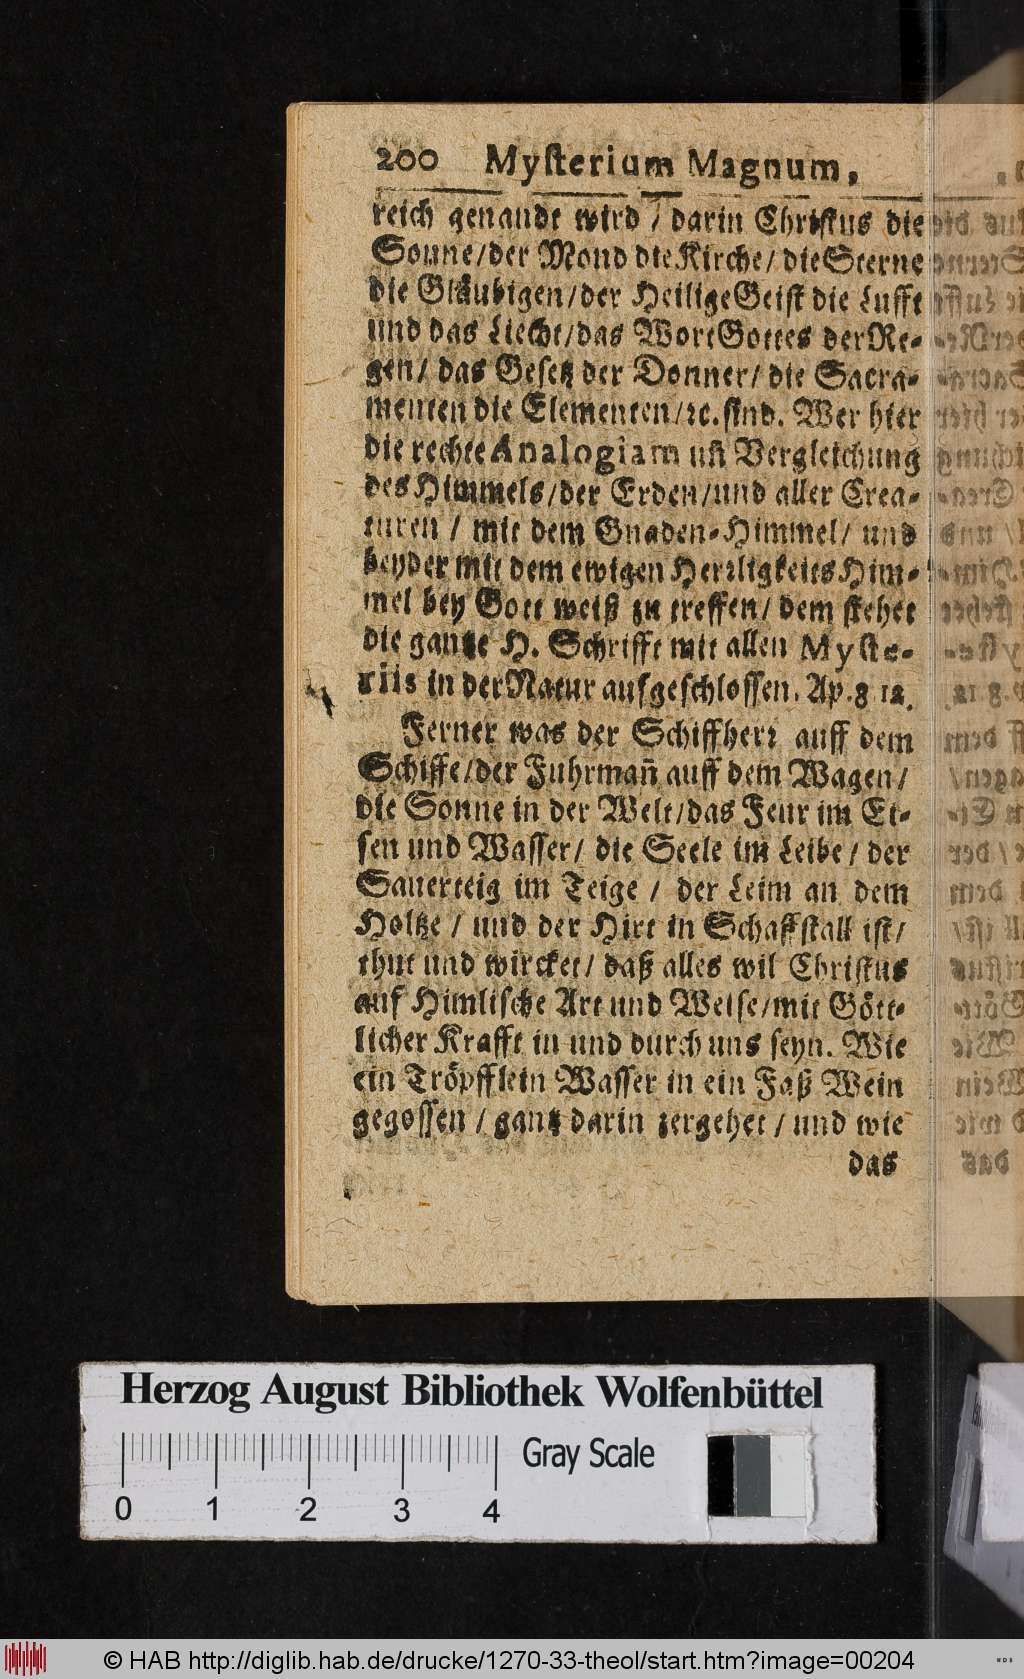 200 Mysterium Magnum,
reich genandt wird / darin Christus die
Sonne/der Mond die Kirche/ die Sterne
die Gläubigen/der Heilige Geist die Lufft
und das Liecht/das Wort Gottes der Re-
gen/ das Gesetz der Donner/ die Sacra-
menten die Elementen/ꝛc. sind. Wer hier
die rechte Analogiam uñ Vergleichung
des Himmels/der Erden/und aller Crea-
turen / mit dem Gnaden-Himmel/ und
beyder mit dem ewigen Herrligkeits Him-
mel bey Gott weiß zu treffen/ dem stehet
die gantze H. Schrifft mit allen Myste-
riis in der Natur aufgeschlossen. Ap. 8 12.
Ferner was der Schiffherr auff dem
Schiffe/der Fuhrmañ auff dem Wagen/
die Sonne in der Welt/das Feur im Ei-
sen und Wasser/ die Seele im Leibe/ der
Sauerteig im Teige / der Leim an dem
Holtze / und der Hirt in Schaffstall ist/
thut und wircket/ daß alles wil Christus
auf Himlische Art und Weise/mit Gött-
licher Krafft in und durch uns seyn. Wie
ein Tröpfflein Wasser in ein Faß Wein
gegossen / gantz darin zergehet / und wie
das
Herzog August Bibliothek Wolfenbüttel
Gray Scale
0 1 2 3 4
© HAB http://diglib.hab.de/drucke/1270-33-theol/start.htm?image=00204